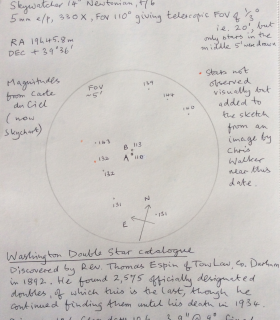 Skywatcher 14" Newtonian, f/6
5mm e/p, 330X, FOV 110° giving telescopic FOV of 1/3°
i.e. 20', but
only stars in the
middle 5' drawn
RA 19h45.8m
DEC +39°36'
Magnitudes
from Carte
du Ciel
(now
Skychart)
FOV
~5'
• Stars not
observed
visually but
added to
the sketch
from an
image by
Chris
Walker
near this
date.
B 113
A 110
132
131
131
N
E
Washington Double Star Catalogue
Discovered by Rev. Thomas Espin of Tow Law, Co. Durham
in 1892. He found 2,575 officially designated
doubles, of which this is the last, though he
continued finding them until his death in 1934.